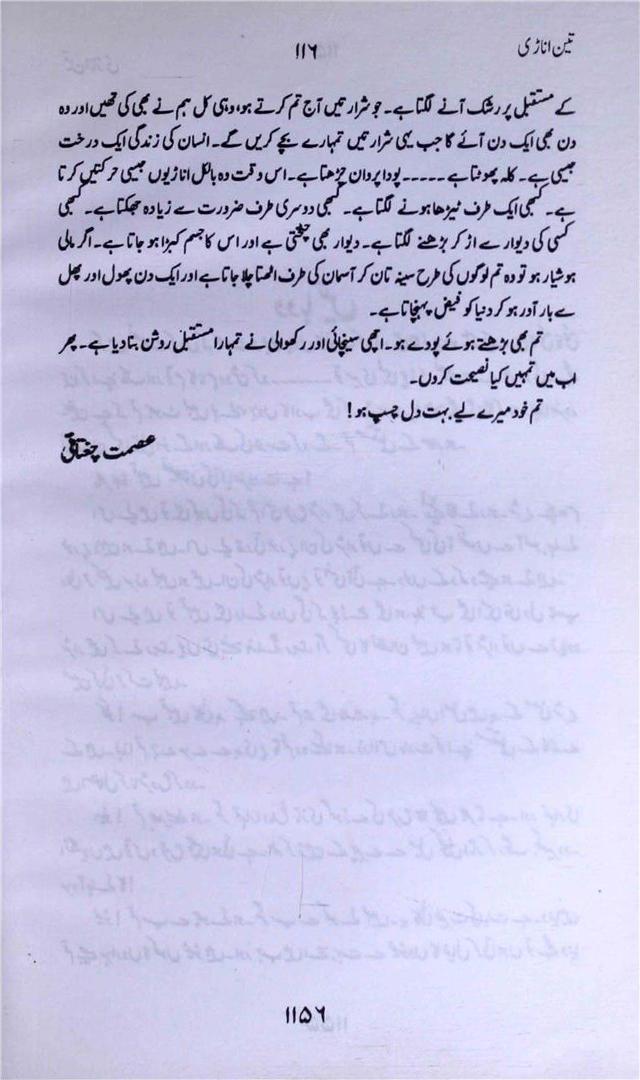 تین اناڑی
۱۱۶
کے مستقبل پر رشک آنے لگتا ہے۔ جو شرارتیں آج تم کرتے ہو، وہی کل ہم نے بھی کی تھیں اور وہ
دن بھی ایک دن آئے گا جب یہی شرارتیں تمہارے بچے کریں گے۔ انسان کی زندگی ایک درخت
جیسی ہے۔ کلہ پھوٹتا ہے ----- پودا پروان چڑھتا ہے۔ اس وقت وہ بالکل اناڑیوں جیسی حرکتیں کرتا
ہے۔ کبھی ایک طرف ٹیڑھا ہونے لگتا ہے۔ کبھی دوسری طرف ضرورت سے زیادہ جھکتا ہے۔ کبھی
کسی کی دیوار سے اڑ کر بڑھنے لگتا ہے۔ دیوار بھی چٹختی ہے اور اس کا جسم کبڑا ہو جاتا ہے۔ اگر مالی
ہوشیار ہو تو وہ تم لوگوں کی طرح سینہ تان کر آسمان کی طرف اٹھتا چلا جاتا ہے اور ایک دن پھول اور پھل
سے بار آور ہو کر دنیا کو فیض پہنچاتا ہے۔
تم بھی بڑھتے ہوئے پودے ہو۔ اچھی سینچائی اور رکھوالی نے تمہارا مستقبل روشن بنا دیا ہے۔ پھر
اب میں تمہیں کیا نصیحت کروں۔
تم خود میرے لیے بہت دل چسپ ہو!
عصمت چغتائی
۱۱۵۶